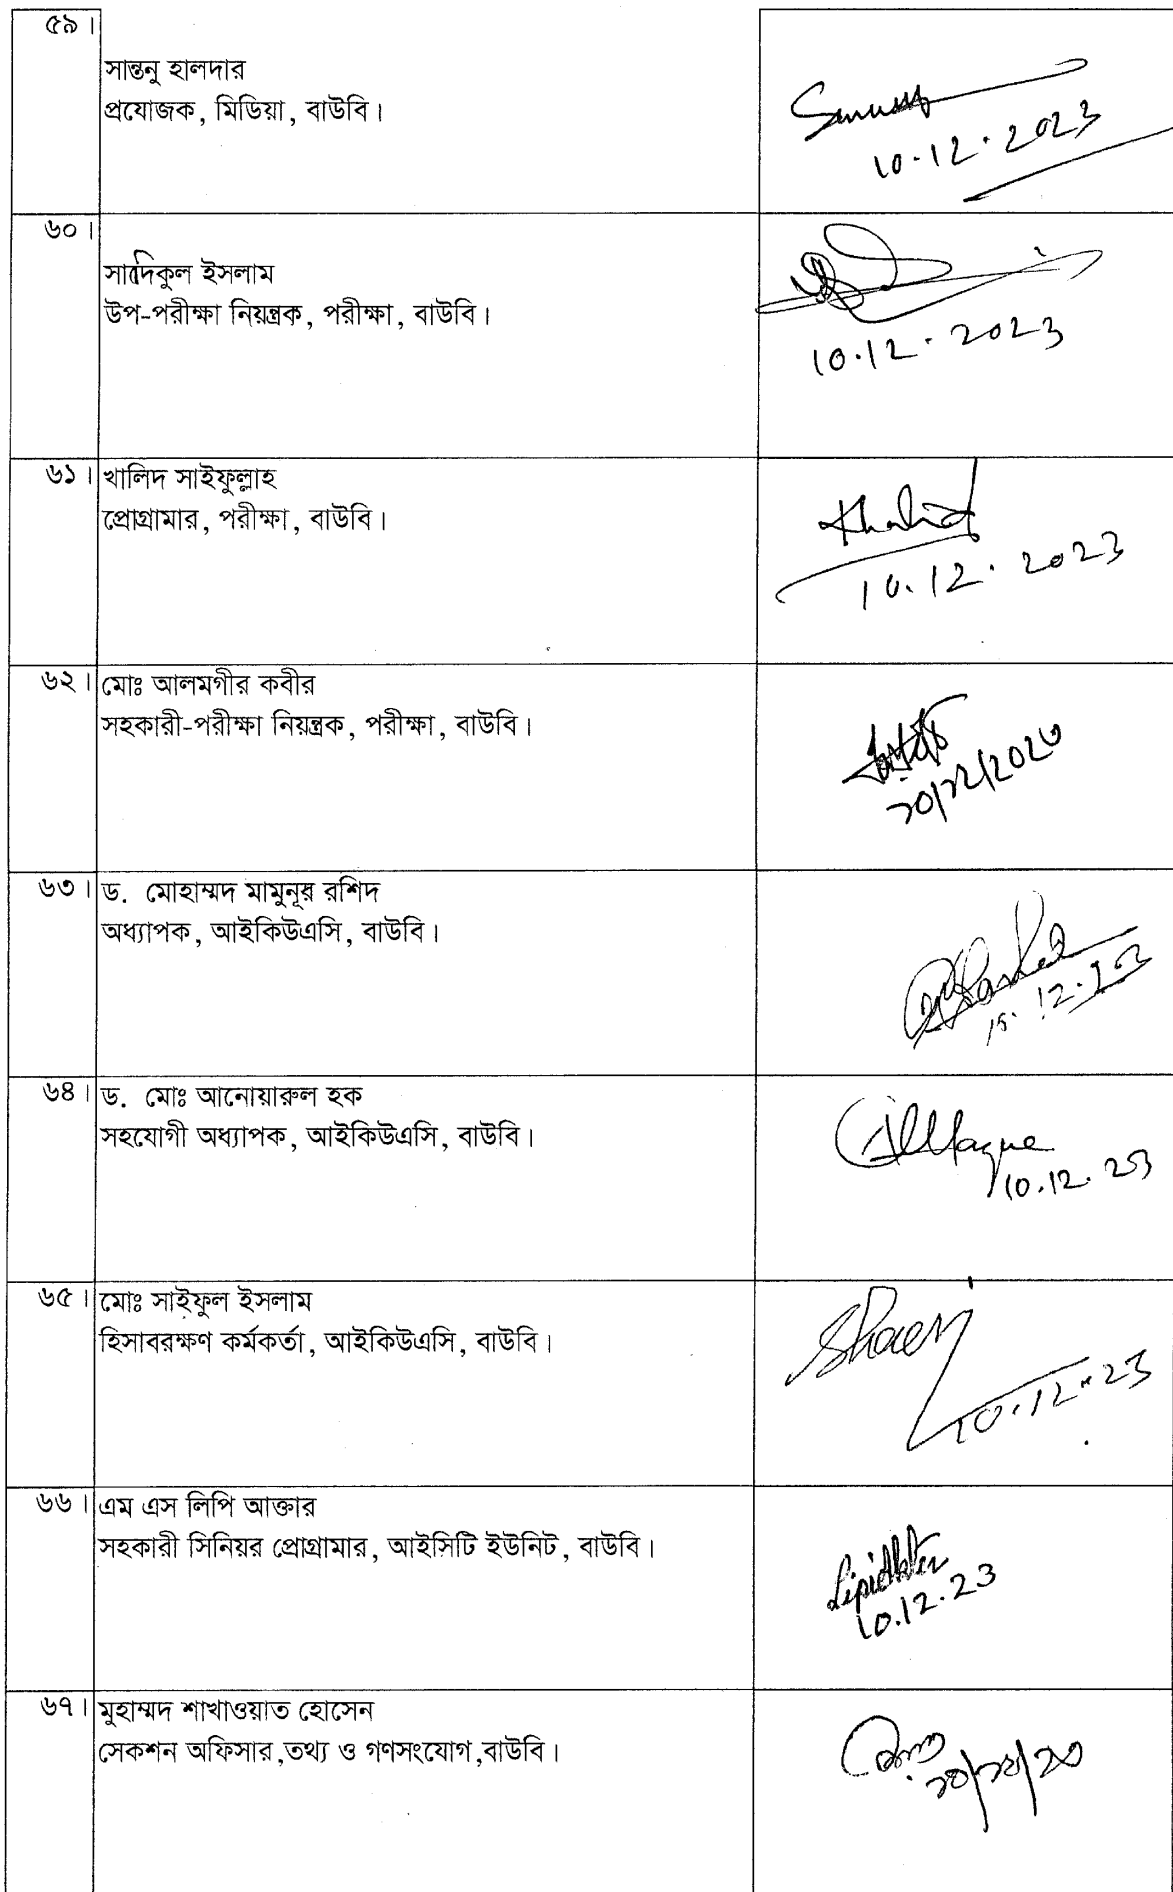 ৫৯।
সান্তনু হালদার
প্রযোজক, মিডিয়া, বাউবি।
10.12.2023
৬০।
সাদিকুল ইসলাম
উপ-পরীক্ষা নিয়ন্ত্রক, পরীক্ষা, বাউবি।
10.12.2023
৬১। খালিদ সাইফুল্লাহ
প্রোগ্রামার, পরীক্ষা, বাউবি।
Khalid
10.12.2023
৬২। মোঃ আলমগীর কবীর
সহকারী-পরীক্ষা নিয়ন্ত্রক, পরীক্ষা, বাউবি।
১০/১২/২০২৩
৬৩। ড. মোহাম্মদ মামুনূর রশিদ
অধ্যাপক, আইকিউএসি, বাউবি।
৬৪। ড. মোঃ আনোয়ারুল হক
সহযোগী অধ্যাপক, আইকিউএসি, বাউবি।
10.12.23
৬৫। মোঃ সাইফুল ইসলাম
হিসাবরক্ষণ কর্মকর্তা, আইকিউএসি, বাউবি।
10.12.23
৬৬। এম এস লিপি আক্তার
সহকারী সিনিয়র প্রোগ্রামার, আইসিটি ইউনিট, বাউবি।
LipiAkter
10.12.23
৬৭। মুহাম্মদ শাখাওয়াত হোসেন
সেকশন অফিসার,তথ্য ও গণসংযোগ,বাউবি।
১০/১২/২৩